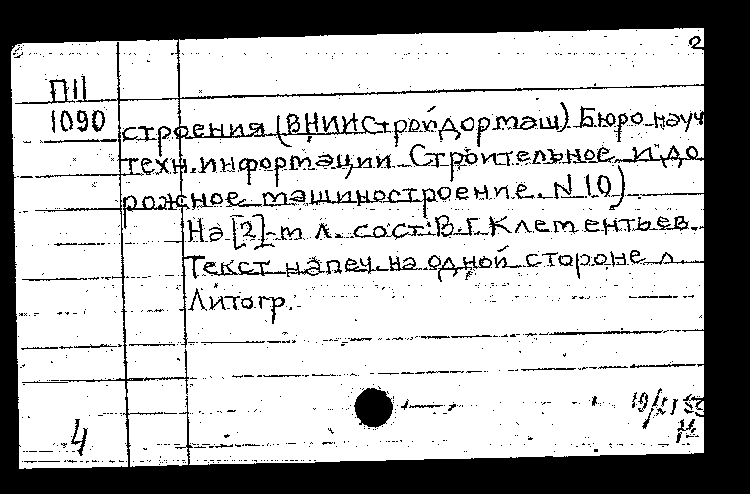 2
П11
1090 строения (ВНИИСтройдормаш) Бюро науч
техн. информации Строительное и до
рожное машиностроение. N 10)
На [2]-м л. сост: В. Г. Клементьев.
Текст напеч. на одной стороне л.
Литогр.
4